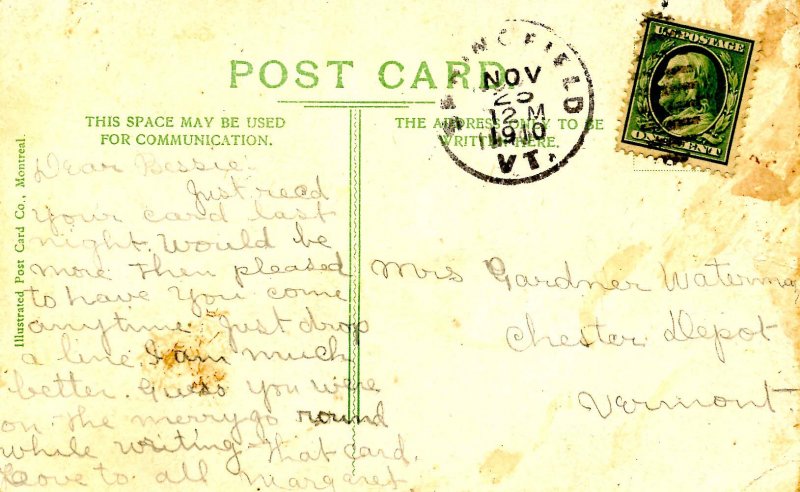 POST CARD
THIS SPACE MAY BE USED
FOR COMMUNICATION.
THE ADDRESS ONLY TO BE
WRITTEN HERE.
SPRINGFIELD
NOV
25
12 M
1910
VT.
U.S. POSTAGE
ONE CENT
Illustrated Post Card Co., Montreal.
Dear Bessie:
Just recd
your card last
night. Would be
more then pleased
to have you come
anytime. Just drop
a line. I am much
better. Guess you were
on the merry go round
while writing that card.
Love to all Margaret
Mrs Gardner Waterman
Chester Depot
Vermont.